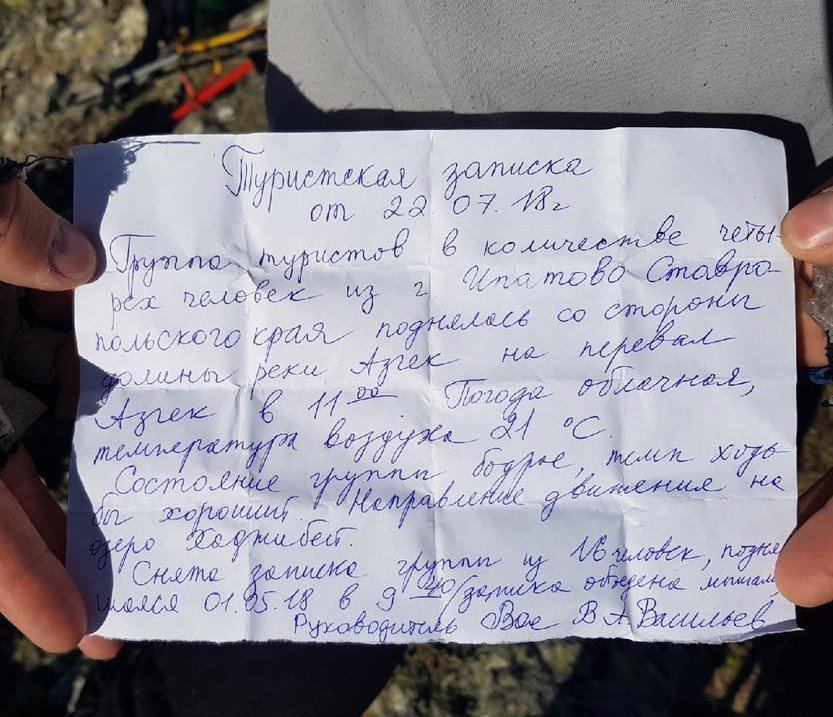 Туристская записка
от 22.07.18г
Группа туристов в количестве четы-
рех человек из г Ипатово Ставро-
польского края поднялась со стороны
долины реки Азгек на перевал
Азгек в 11 00 Погода облачная,
температура воздуха 21 °С.
Состояние группы бодрое, темп ходь
бы хороший. Направление движения на
озеро Хаджибей.
Снята записка группы из 16 человек, подня
шаяся 01.05.18 в 9 40 /записка объедена мышами
Руководитель Вас В А Васильев